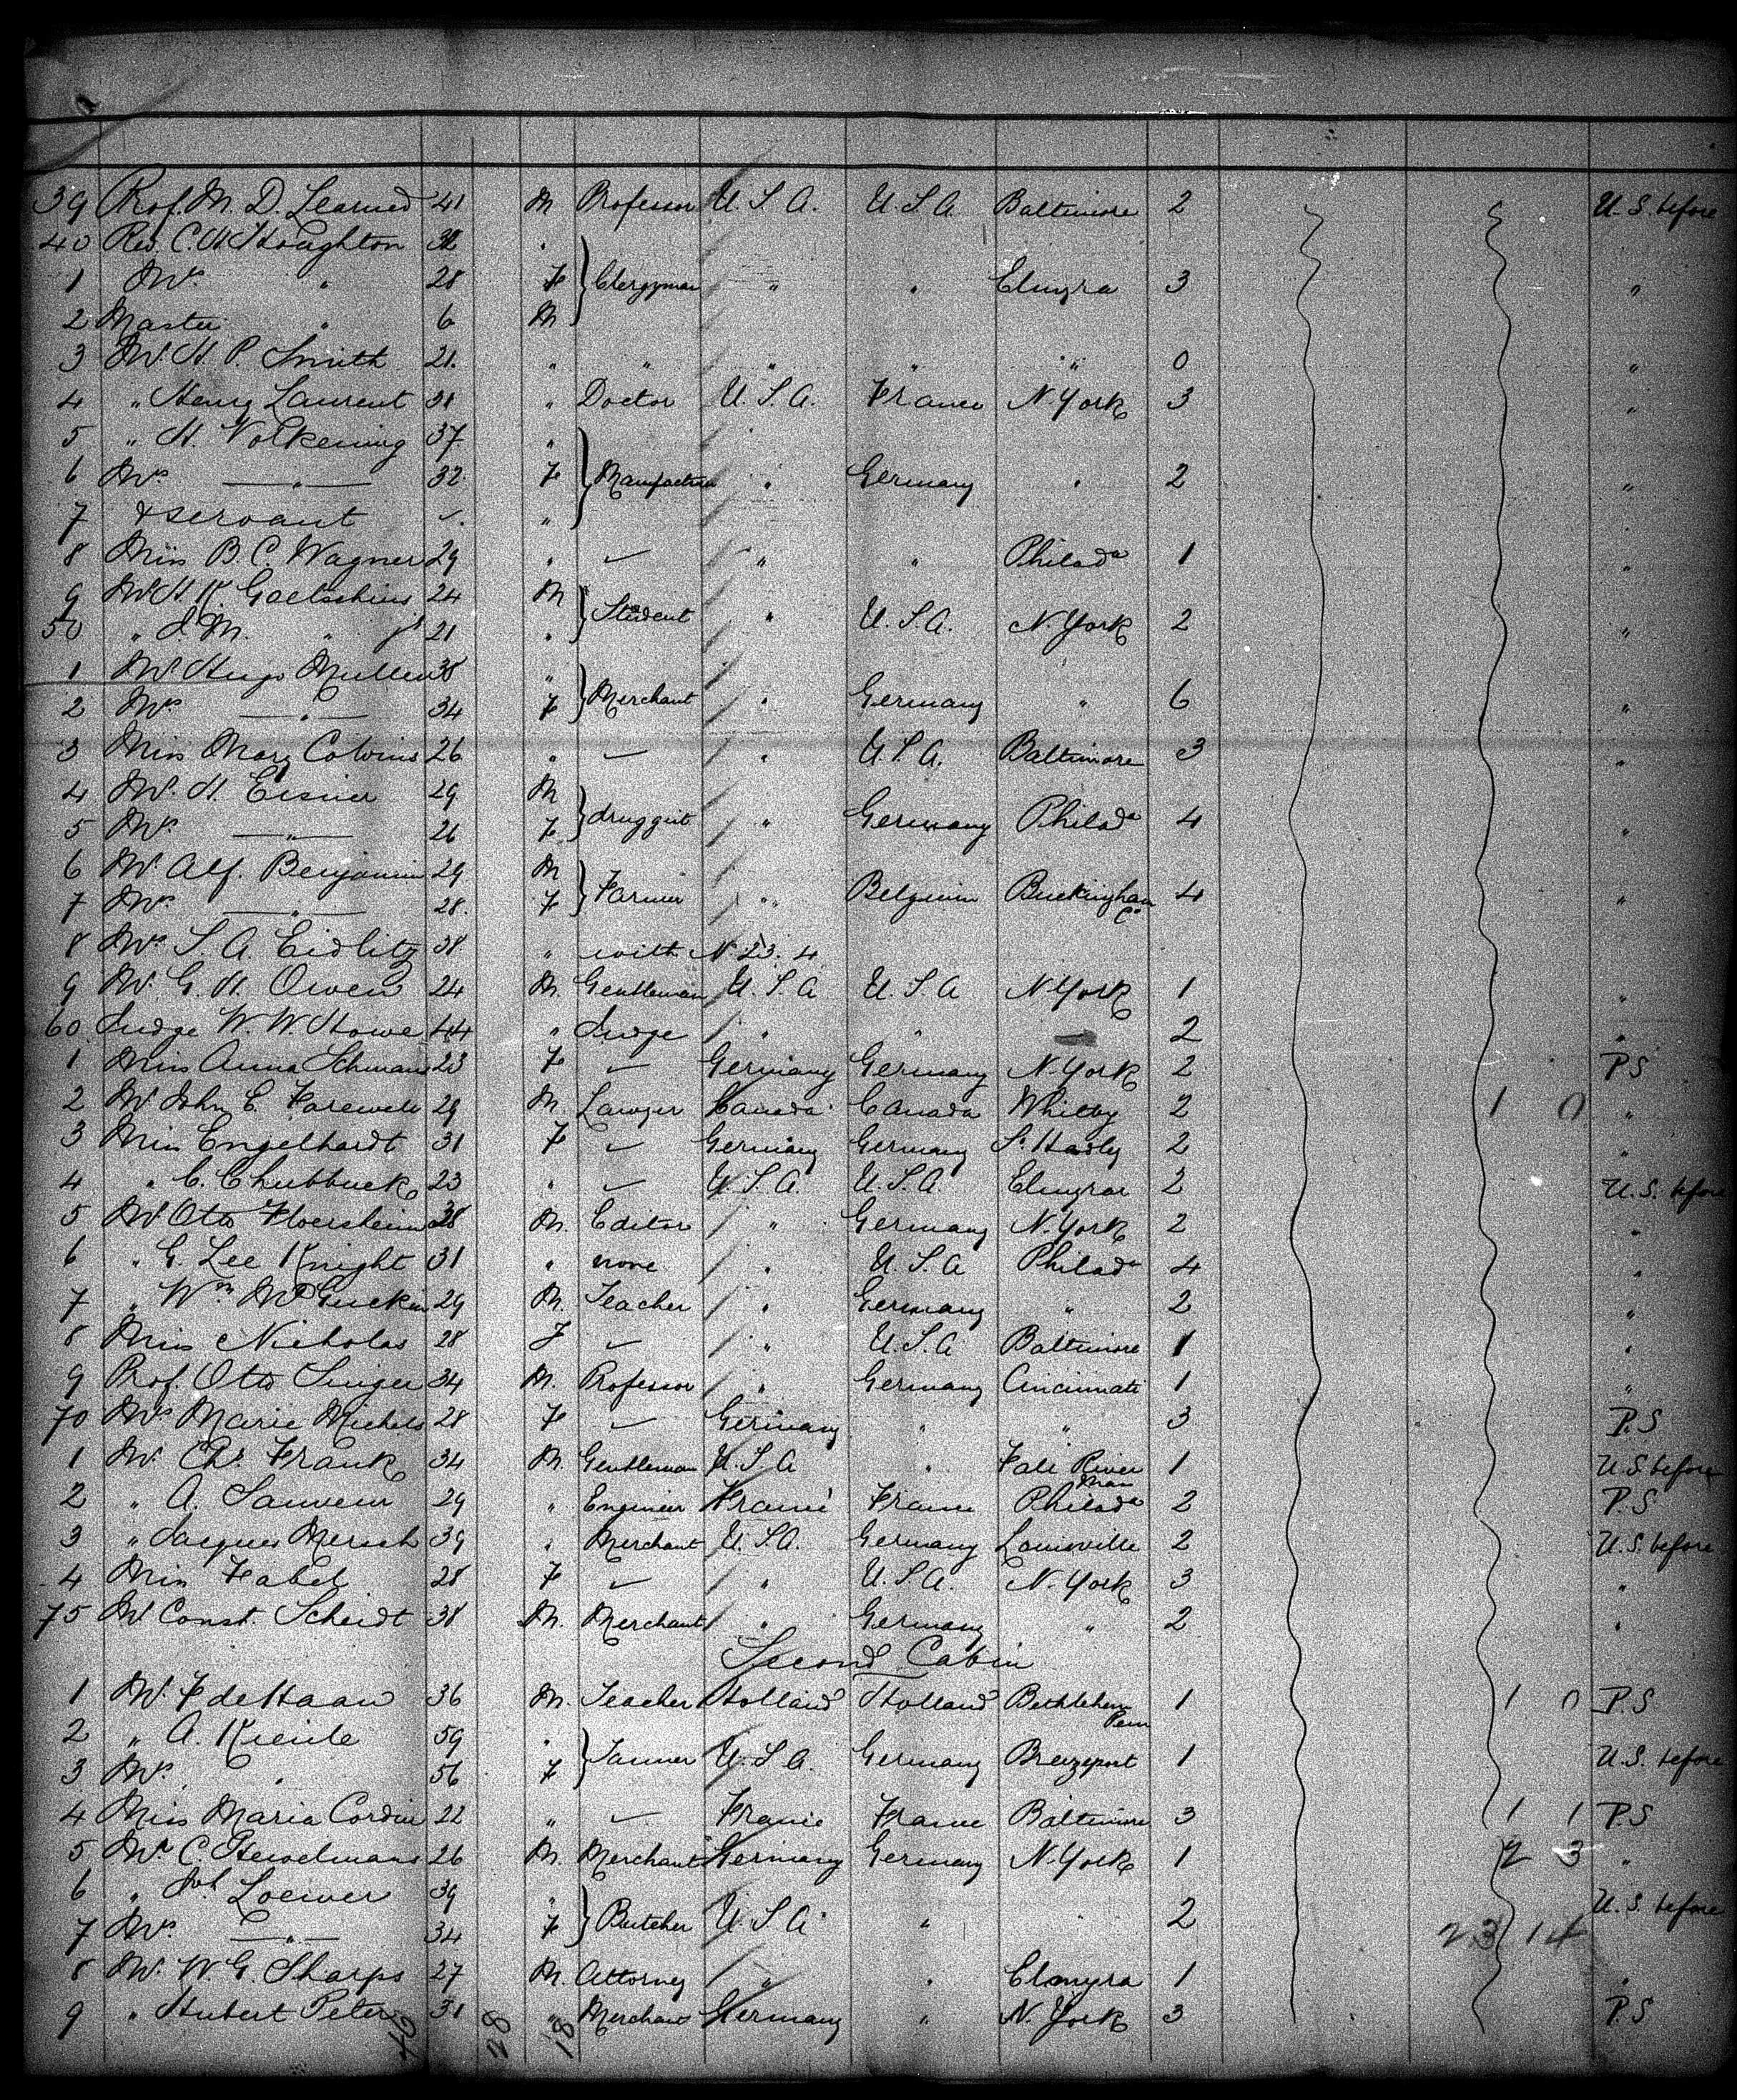 39 Prof. M. D. Learned 41 M Professor U.S.A. U.S.A Baltimore 2 U.S. before
40 Rev. C. H. Houghton 32 "
1 Mrs " 28 F Clergyman " " Elmyra 3 "
2 Master " 6 M
3 Mr H. P. Smith 21. " " " " " 0 "
4 " Henry Laurent 31 " Doctor U.S.A. France N. York 3 "
5 " H. Volkening 37 "
6 Mrs " 32 F Manufacturer " Germany " 2 "
7 & servant "
8 Miss B. C. Wagner 29 " " " Philada 1 "
9 Mr H. K. Goetschius 24 M
50 " J. M. " jr 21 " Student " U.S.A. N. York 2 "
1 Mr Hugo Muller 38 "
2 Mrs " 34 F Merchant " Germany " 6 "
3 Miss Mary Colvins 26 " " U.S.A. Baltimore 3 "
4 Mr. H. Eisner 29 M
5 Mrs " 26 F druggist " Germany Philada 4 "
6 Mr Alf. Benjamin 29 M
7 Mrs " 28. F Farmer " Belgium Buckingham Co 4 "
8 Mrs S. A. Eidlitz 38 " with N. 23. 4
9 Mr. G. H. Owen 24 M. Gentleman U.S.A U.S.A N. York 1 "
60 Judge W. W Howe 44 " Judge " " 2 "
1 Miss Anna Schwarz 23 F Germany Germany N. York 2 P.S
2 Mr John E. Farewell 29 M. Lawyer Canada Canada Whitby 2 1 0 "
3 Miss Engelhardt 31 F Germany Germany S. Hadly 2 "
4 " C. Chubbuck 23 " U.S.A. U.S.A. Elmyra 2 U.S. before
5 Mr Otto Floersheim 38 M. Editor " Germany N. York 2 "
6 " G. Lee Knight 31 " none " U.S.A Philada 4 "
7 " Wm McGuckin 29 M. Teacher " Germany " 2 "
8 Miss Nicholas 28 F " U.S.A Baltimore 1 "
9 Prof. Otto Singer 34 M. Professor " Germany Cincinnati 1 "
70 Mrs Marie Michels 28 F Germany " " 3 P.S
1 Mr. Chs. Frank 34 M. Gentleman U.S.A " Fall River Mass 1 U.S. before
2 " A. Sauveur 29 " Engineer France France Philada 2 P.S
3 " Jacques Mersch 39 " Merchant U.S.A. Germany Louisville 2 U.S. before
4 Miss Fabel 28 F " U.S.A. N. York 3 "
75 Mr Const. Scheidt 38 M. Merchant " Germany " 2 "
Second Cabin
1 Mr. F de Haan 36 M. Teacher Holland Holland Bethlehem Penn 1 1 0 P.S
2 " A. Kienle 59 "
3 Mrs " 56 F Tanner U.S.A. Germany 1 U.S. before
4 Miss Maria Cordier 22 " France France Baltimore 3 1 1 P.S
5 Mr C. Hewelmans 26 M. Merchant Germany Germany N. York 1 2 3 "
6 " Joh. Loewer 39 "
7 Mrs " 34 F Butcher U.S.A " " 2 U.S. before
23 14
8 Mr. W. G. Sharps 27 M. Attorney " " Elmyra 1 "
9 " Hubert Peters 31 " Merchant Germany " N. York 3 P.S
46 28 18